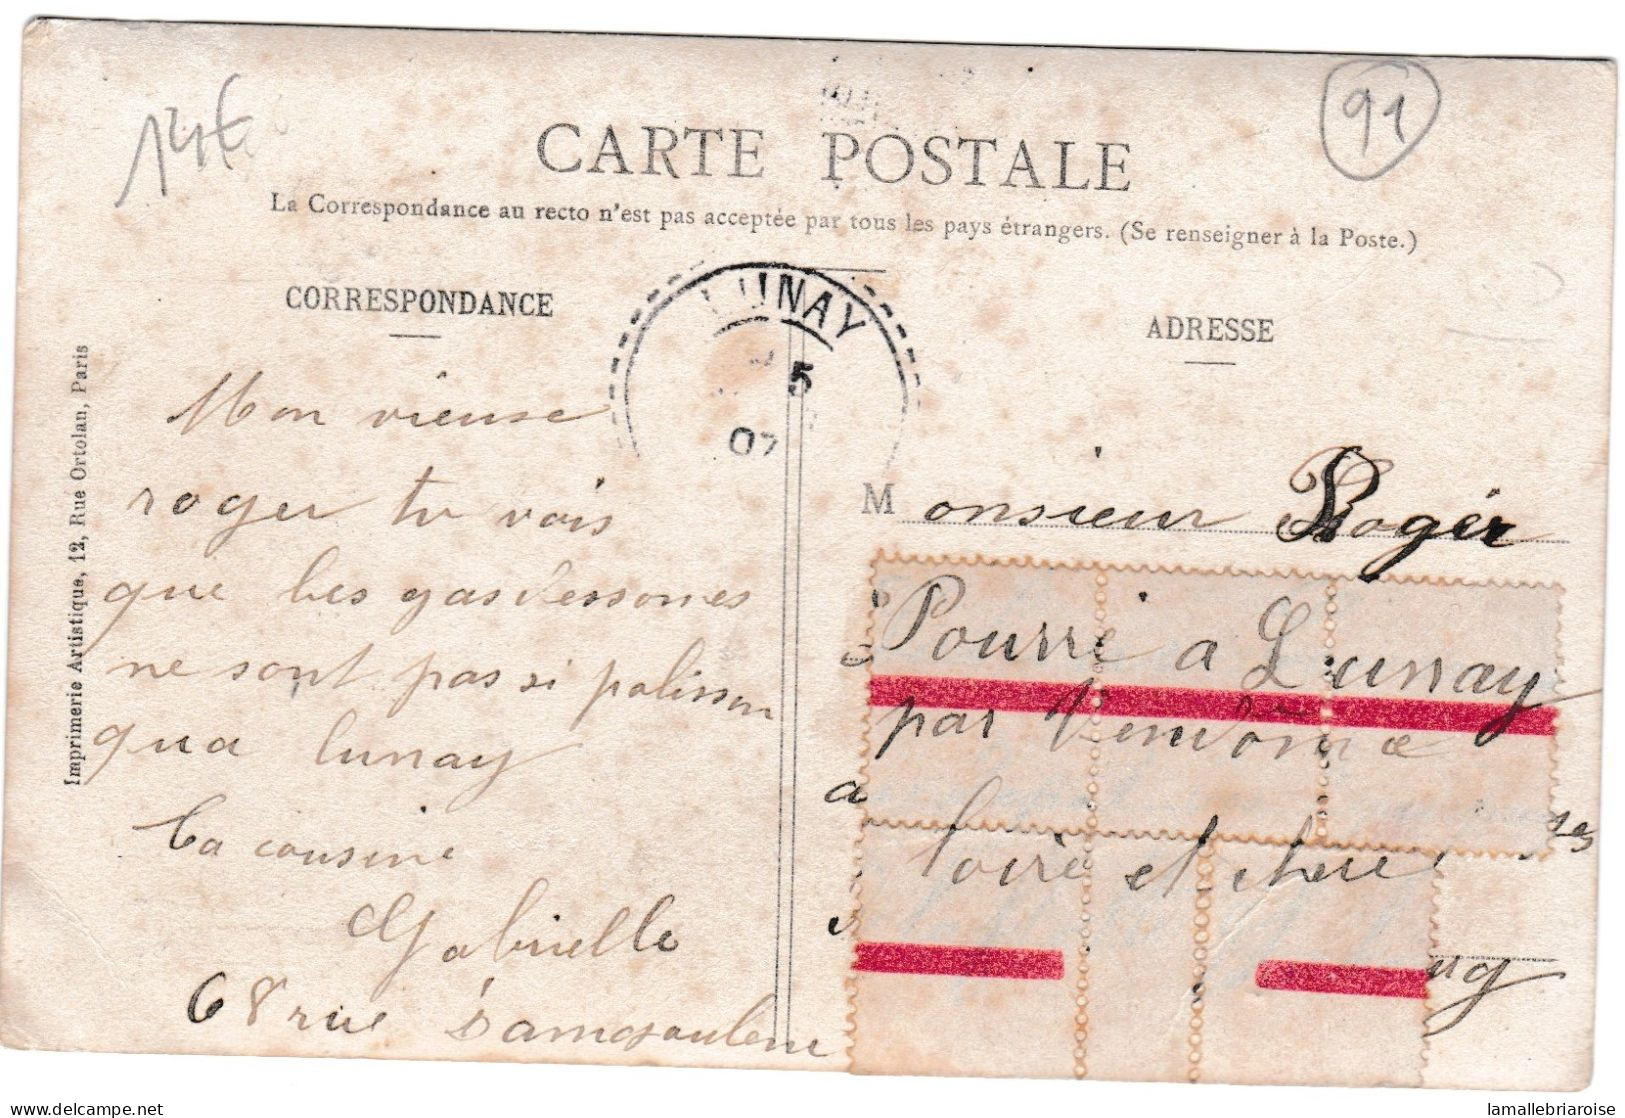 14€
91
CARTE POSTALE
La Correspondance au recto n'est pas acceptée par tous les pays étrangers. (Se renseigner à la Poste.)
CORRESPONDANCE
LUNAY
5
07
ADRESSE
Imprimerie Artistique, 12, Rue Ortolan, Paris
Mon vieuse
roger tu vois
que les gas
ne sont pas si polisson
qua lunay
Ta cousine
Gabrielle
68 rue
Monsieur Roger
Pourré a Lunay
par Vendome
loire et cher
lamallebriaroise